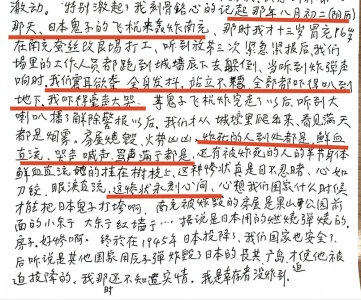 激动。"特别激起了我刻骨铭心的记起那年八月初二(阴历)
那天、日本鬼子的飞机来轰炸南充,那时我才十三冒充16岁
在南充蚕丝改良场打工、听到放第三次紧急警报后,我们
场里的工作人员都跑到城墙底下去躲倒、当听到炸弹声
响时,我们震耳欲聋、全身发抖,站立不稳、全部都吓得趴到
地下,我吓得壹声大哭、等鬼子飞机炸完走了以后,听到大
喇叭播了解除警报以后、我们才从城墙里爬出来、看见满天
都是烟雾、房屋烧毁、火势凶凶、炸死的人到处都是、鲜血
直流、哭声喊声骂声满于都是、还有被炸死的人的半节身体
鲜血直流糊的挂在树枝上、这种惨状真是目不忍睹、心如
刀绞、眼泪直流、这惨状永刻心间、心想我们国家什么时候
才能把日本鬼子打垮啊、南充被炸毁的房屋是果山公园前
面的小东于 大东于红墙于… 据说是日本用的燃烧弹烧的。
房子。好惨啊。终於在1945年日本投降了、我们国家也安全了、
后听说是其他国家用原子弹炸毁了日本的長其、广岛才使他被迫
迫投降的。我那还不知道实情。我是幸存者没炸到。
时